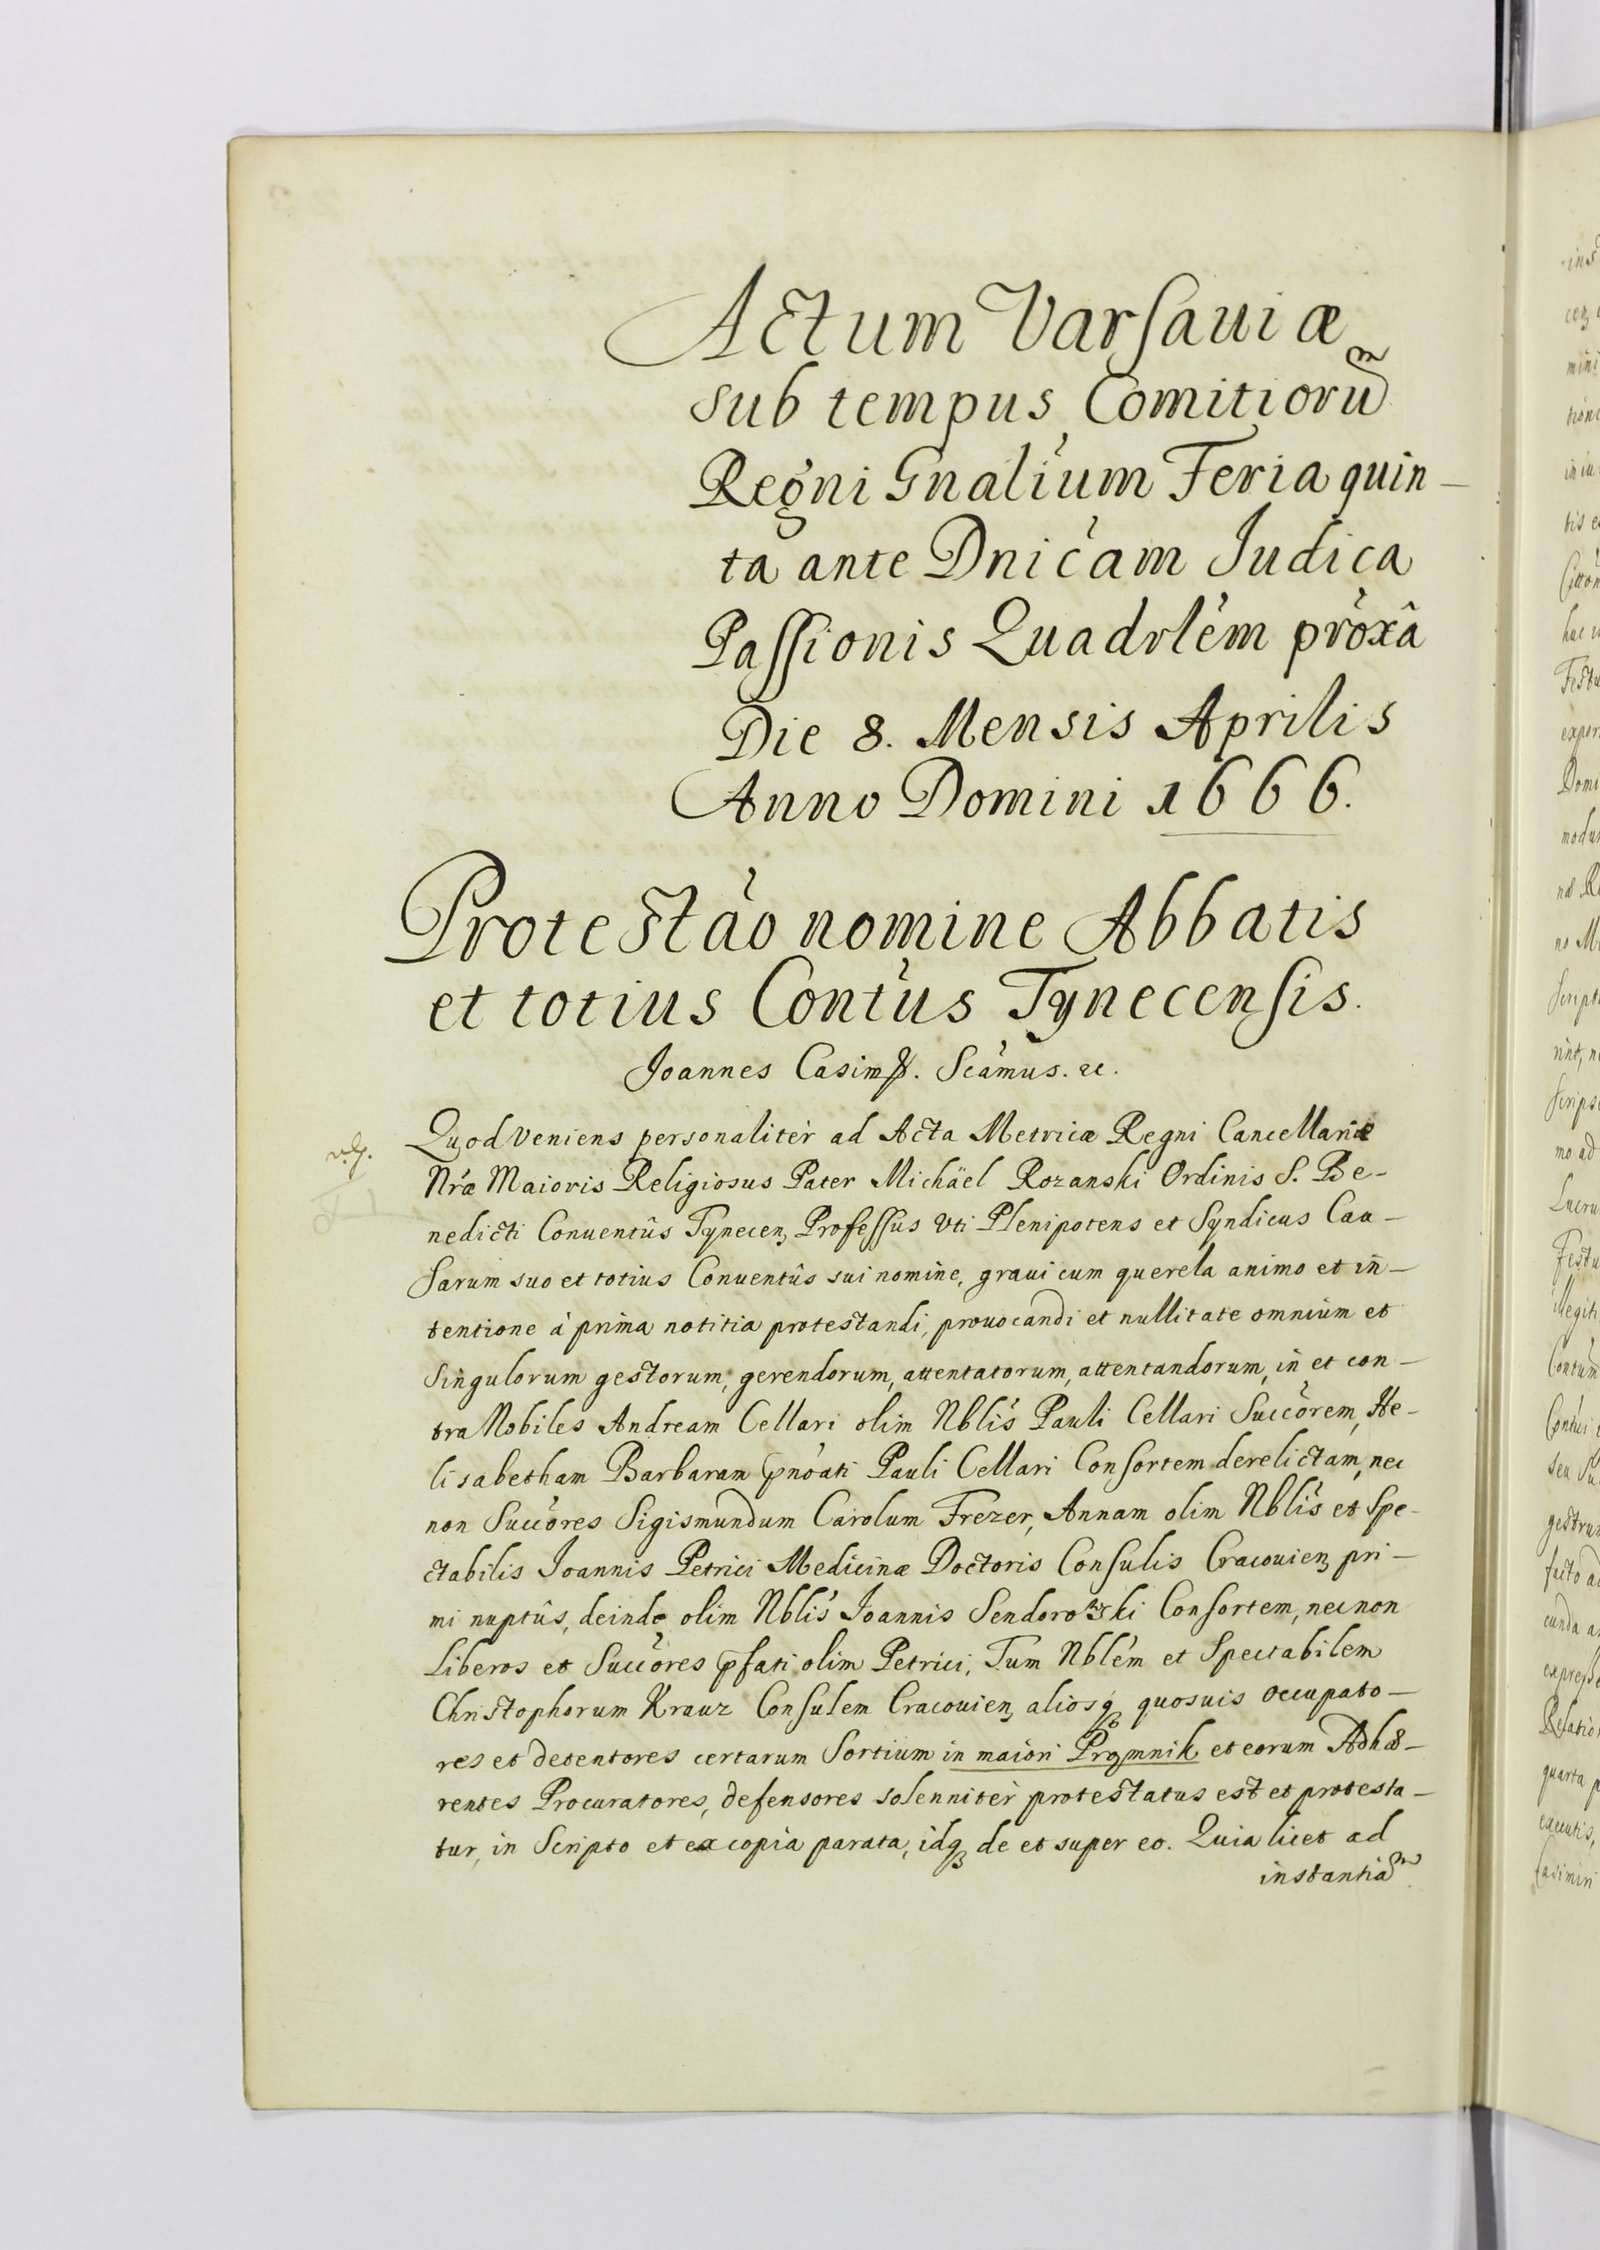 Actum Varsauiæ
sub tempus Comitioru͂
Regni Gnalium Feria quin-
ta ante Dnicam Judica
Passionis Quadrlem proxâ
Die 8. Mensis Aprilis
Anno Domini 1666.
Protestao nomine Abbatis
et totius Contus Tynecensis.
Joannes Casim. Scamus. &c.
Quod Veniens personaliter ad Acta Metricæ Regni Cancellariæ
Nræ Maioris Religiosus Pater Michäel Rozanski Ordinis S. Be-
nedicti Conuentûs Tynecen, Professus Vti Plenipotens et Syndicus Cau-
sarum suo et totius Conuentûs sui nomine, graui cum querela animo et in-
tentione à prima notitia protestandi, prouocandi et nullitate omnium et
singulorum gestorum, gerendorum, attentatorum, attentandorum, in et con-
tra Nobiles Andream Cellari olim Nblis Pauli Cellari Succorem, He-
lisabetham Barbaram pnoati Pauli Cellari Consortem derelictam, nec
non Succores Sigismundum Carolum Frezer, Annam olim Nblis et Spe-
ctabilis Joannis Petrici Medicinæ Doctoris Consulis Cracouien, pri-
mi nuptûs, deinde olim Nblis Joannis Sendorowski Consortem, necnon
Liberos et Succores pfati olim Petrici, Tum Nblem et Spectabilem
Christophorum Krauz Consulem Cracouien, aliosq quosuis occupato-
res et detentores certarum Sortium in maiori Promnik et eorum Adhæ-
rentes Procuratores, defensores solenniter protestatus est et protesta-
tur, in Scripto et ex copia parata, idq de et super eo. Quia licet ad
instantia͂